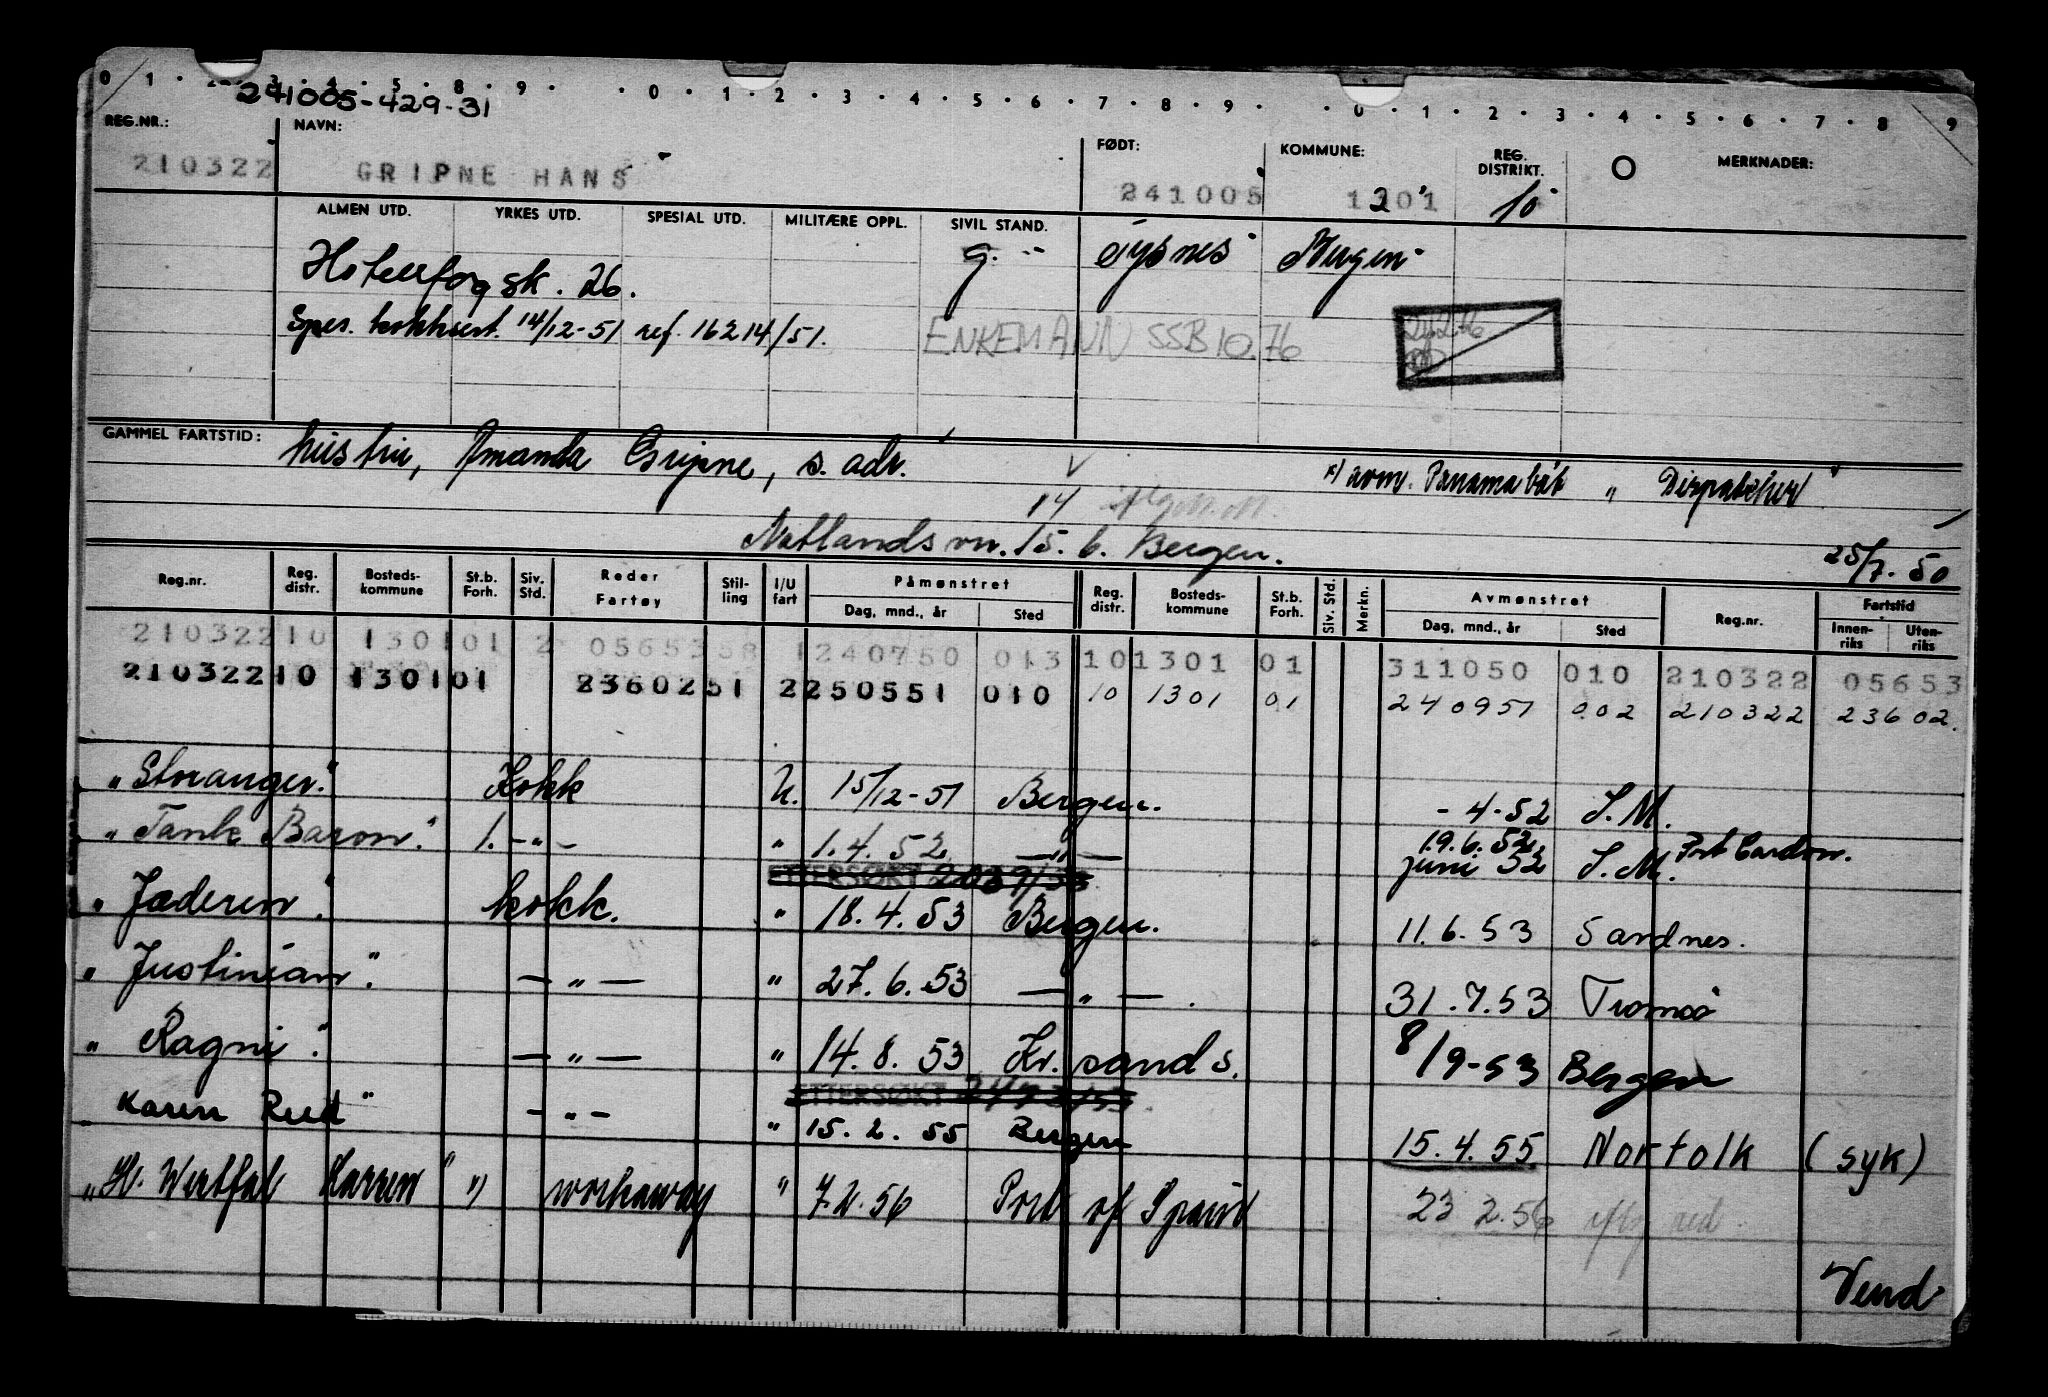 0 1 . 3 . 4 . 5 . 8 . 9 . . 0 . 1 . 2 . 3 . 4 . 5 . 6 . 7 . 8 . 9 . . 0 . 1 . 2 . 3 . 4 . 5 . 6 . 7 . 8 . 9
241005-429-31
REG.NR.: NAVN: FØDT: KOMMUNE: REG. DISTRIKT. O MERKNADER:
210322 GRIPNE HANS 241005 1201 10
ALMEN UTD. YRKES UTD. SPESIAL UTD. MILITÆRE OPPL. SIVIL STAND.
Hotellfag sk. 26. g. Tysnes Bergen
Spes. kokksert. 14/12-51 ref. 16214/51. ENKEMANN SSB 10.76
GAMMEL FARTSTID: hustru, Amanda Gripne, s. adr.
x) avm. Panamabåt " Dispatcher "
14
Natlandsvn. 15. b. Bergen. 25/7-50
Reg.nr. Reg. distr. Bosteds-kommune St.b. Forh. Siv. Std. Reder Fartøy Stil-ling I/U fart Påmønstret Dag, mnd., år Sted Reg. distr. Bosteds-kommune St.b. Forh. Siv. Std. Merkn. Avmønstret Dag, mnd., år Sted Reg.nr. Fartstid Innen-riks Uten-riks
210322 10 1301 01 2 05653 58 1 240750 013 10 1301 01 311050 010 210322 05653
210322 10 1301 01 23602 51 2 250551 010 10 1301 01 240951 002 210322 23602.
"Storanger." Kokk U. 15/12-51 Bergen. - 4-52 S.M.
"Tank Baron." 1. -"- " 1.4.52 -"- 19.6.52. Port Cardon.
juni 52 S.M.
ETTERSØKT
"Jæderen". kokk. " 18.4.53 Bergen. 11.6.53 Sandnes.
"Justinian". -"- " 27.6.53 -"-. 31.7.53 Tromsø
"Ragni". -"- " 14.8.53 Kr.sand s. 8/9-53 Bergen
ETTERSØKT
Karen Reed" -"- " 15.2.55 Bergen 15.4.55 Norfolk (syk)
"H. Westfal Larsen" " workaway " 7.2.56 Port of Spain 23 2.56 iflg red.
Vend